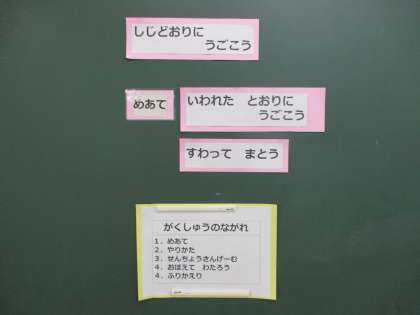 しじどおりに
うごこう
めあて
いわれた　とおりに
うごこう
すわって　まとう
がくしゅうのながれ
1．めあて
2．やりかた
3．せんちょうさんげーむ
4．おぼえて　わたろう
4．ふりかえり